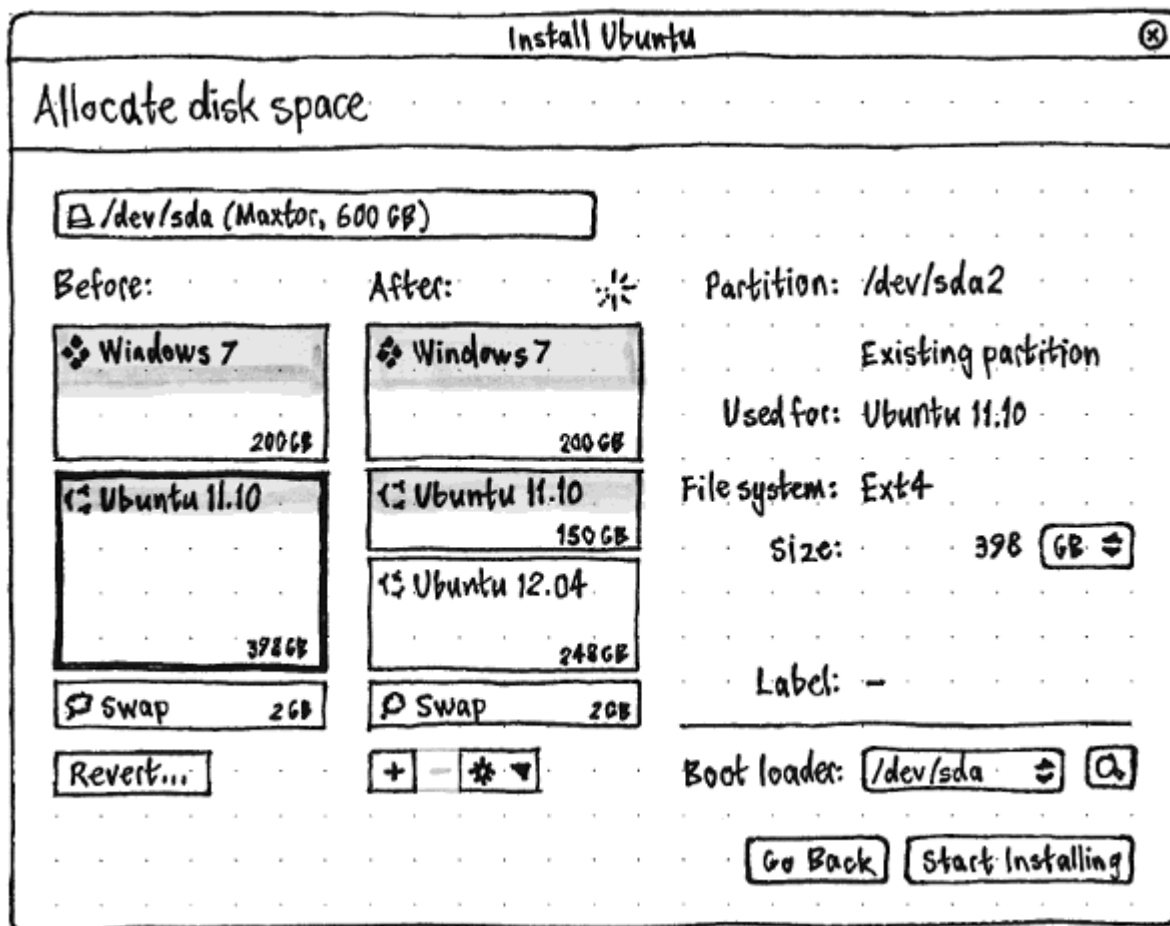 Install Ubuntu
Allocate disk space
/dev/sda (Maxtor, 600 GB)
Before:
Windows 7
200 GB
Ubuntu 11.10
398 GB
Swap 2 GB
Revert...
After:
Windows 7
200 GB
Ubuntu 11.10
150 GB
Ubuntu 12.04
248 GB
Swap 2 GB
+ - * ▼
Partition: /dev/sda2
Existing partition
Used for: Ubuntu 11.10
File system: Ext4
Size: 398 GB
Label: –
Boot loader: /dev/sda
Go Back Start Installing